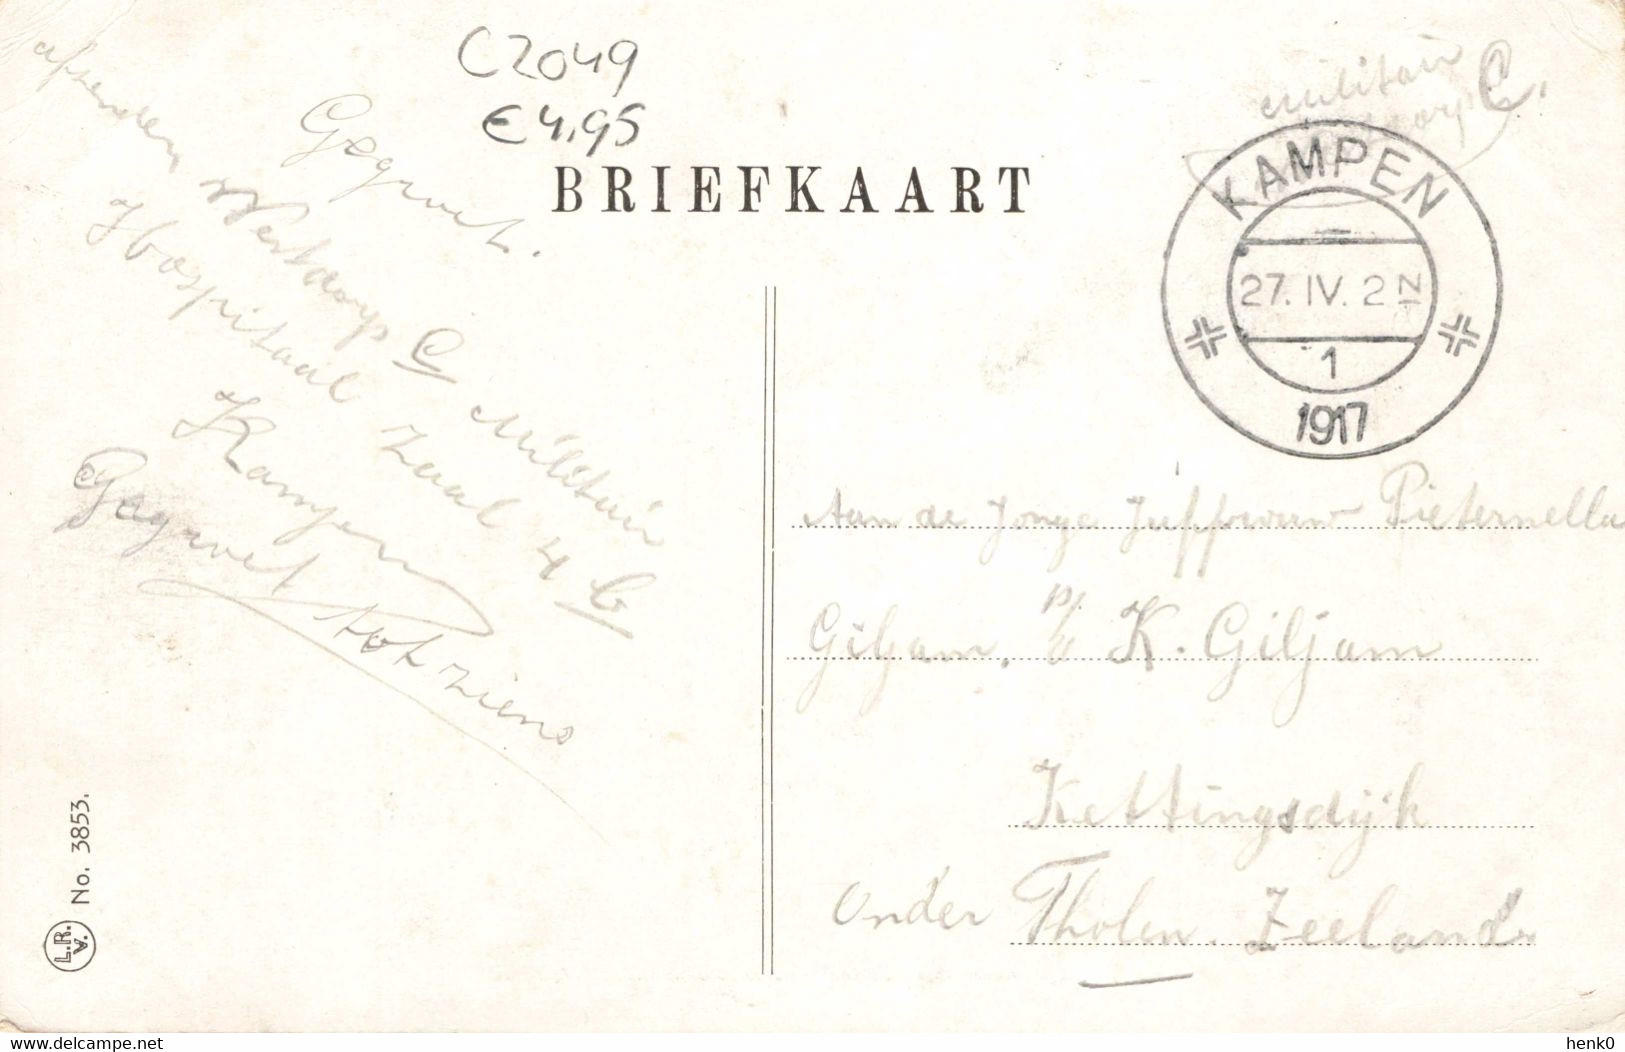 C2049
€4,95
Militair
C.
BRIEFKAART
KAMPEN
27. IV. 2N
1
1917
Gegroet.
afzender
Westdorp C Militair
Hospitaal Zaal 4 b
Kampen
Gegroet tot ziens
Aan de Jonge Juffrouw Pieternella
Giljam. p/a K. Giljam
Kettingsdijk
Onder Tholen. Zeeland
No. 3853.
L.R.
V.
www.delcampe.net
henk0